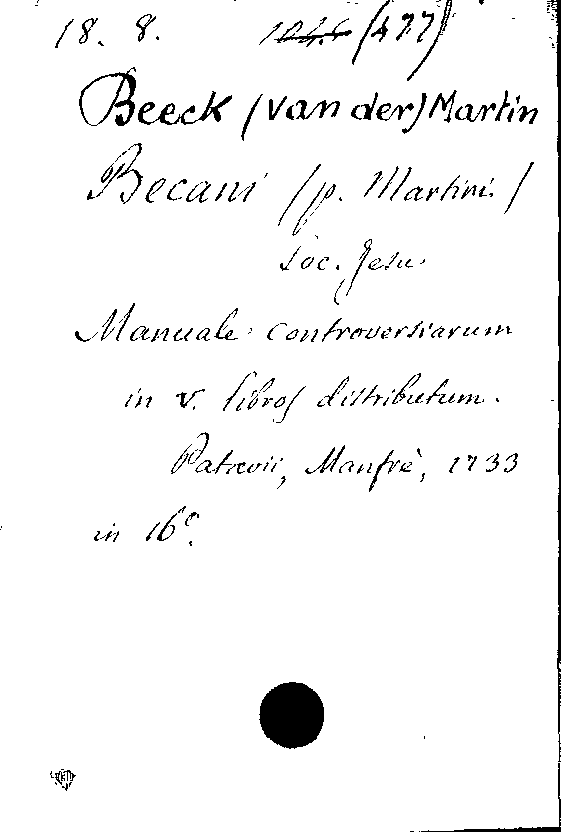 18. 8. 104.6 (477)
Beeck (van der) Martin
Becani (p. Martini)
Soc. Jesu
Manuale controversiarum
in v. libros distributum.
Patavii, Manfrè, 1733
in 16°.